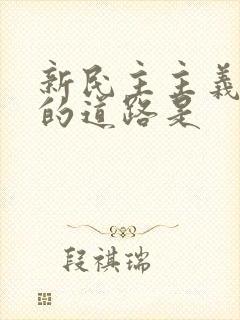 新民主主义
的道路是
段祺瑞